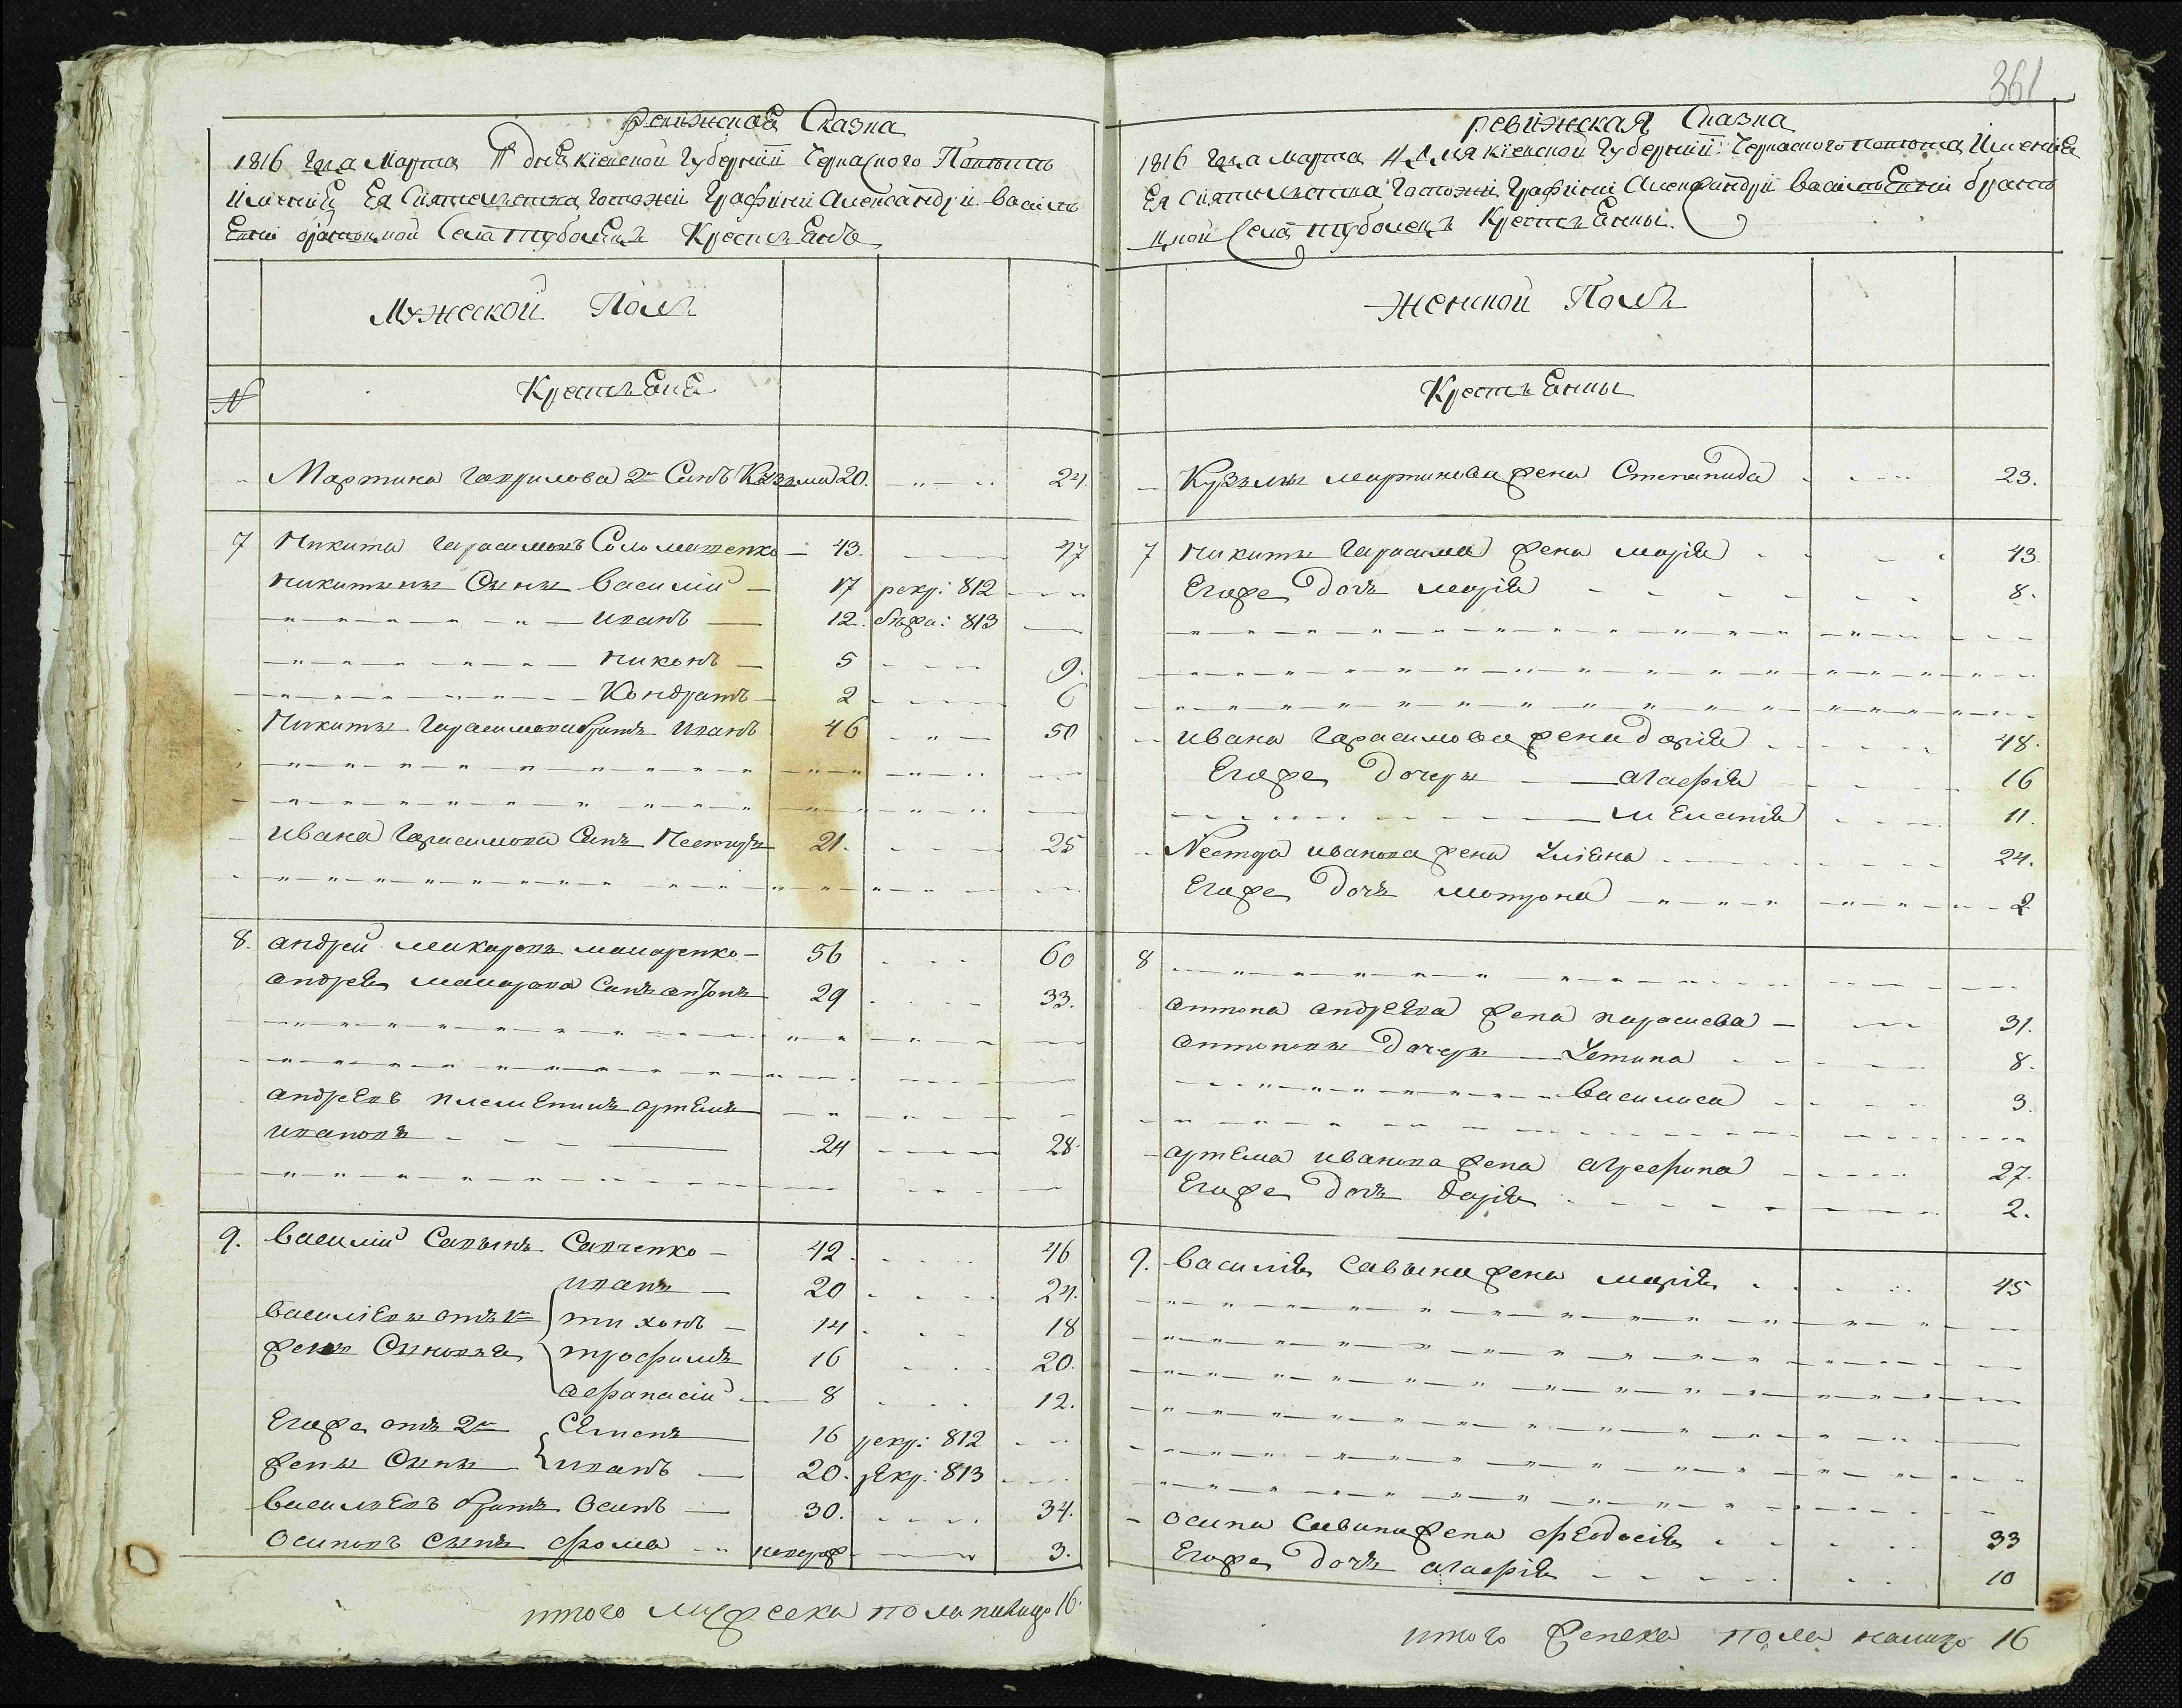 ревизкская Сказка
1816 года Марта дня киевской Губернии Черкаского Повѣта
Имѣнія Ея Сіятельства Госпожи Графини Александри василь
евни браницкой Села тубольцъ Крестьянъ
Мужеской Полъ
N Крестьяне
Мартина гаврилова 2й Синъ Кузьма 20. 24.
7 Никита гарасимовъ Соломаненко 43. 47
никитыны Сыны василій 17 рекр: 812
иванъ 12. бѣжа: 813
никонъ 5 9.
Кондратъ 2 6
Никиты гарасимова братъ иванъ 46 50
ивана гарасимова Синъ Несторъ 21. 25
8. андрей макаровъ макаренко 56 60
андрея макарова Синъ антонъ 29 33.
андреевъ племенникъ артемъ
ивановъ 24 28.
9. василій Савынъ Савченко 42 46
иванъ 20 24.
василіевы отъ 1й тихонъ 14 18
жены Синовья трофимъ 16 20.
афанасій 8 12.
Егоже отъ 2й Семенъ 16 рекр: 812
жены Сыны иванъ 20. рекр: 813
васильевъ братъ Осипъ 30. 34.
Осиповъ сынъ фома новорож 3.
итого мужеска пола налицо 16.
361
ревизкская Сказка
1816 года марта дня киевской Губерніи Черкаского повѣта Имѣнія
Ея Сіятельства Госпожи Графини Александри васильевни брани
цкой Села тубольцъ Крестьянки.
женской Полъ
Крестьянки
Кузьмы мартинова жена Степанида 23.
7 никиты гарасима жена марія 43
Егоже дочь марія 8.
ивана гарасимова жена дарія 48.
Егоже дочеры агафія 16
меланія 11.
Нестора иванова жена Уліяна 24.
Егоже дочь мотрона 2
8
антона андреева жена параскева 31.
антоновы дочеры Устина 8.
василиса 3.
артема иванова жена агрефина 27.
Егоже дочь дарія 2.
9. василія савына жена марія 45
осипа савина жена феодосія 33
Егоже дочь агафія 10
итого женска пола налицо 16